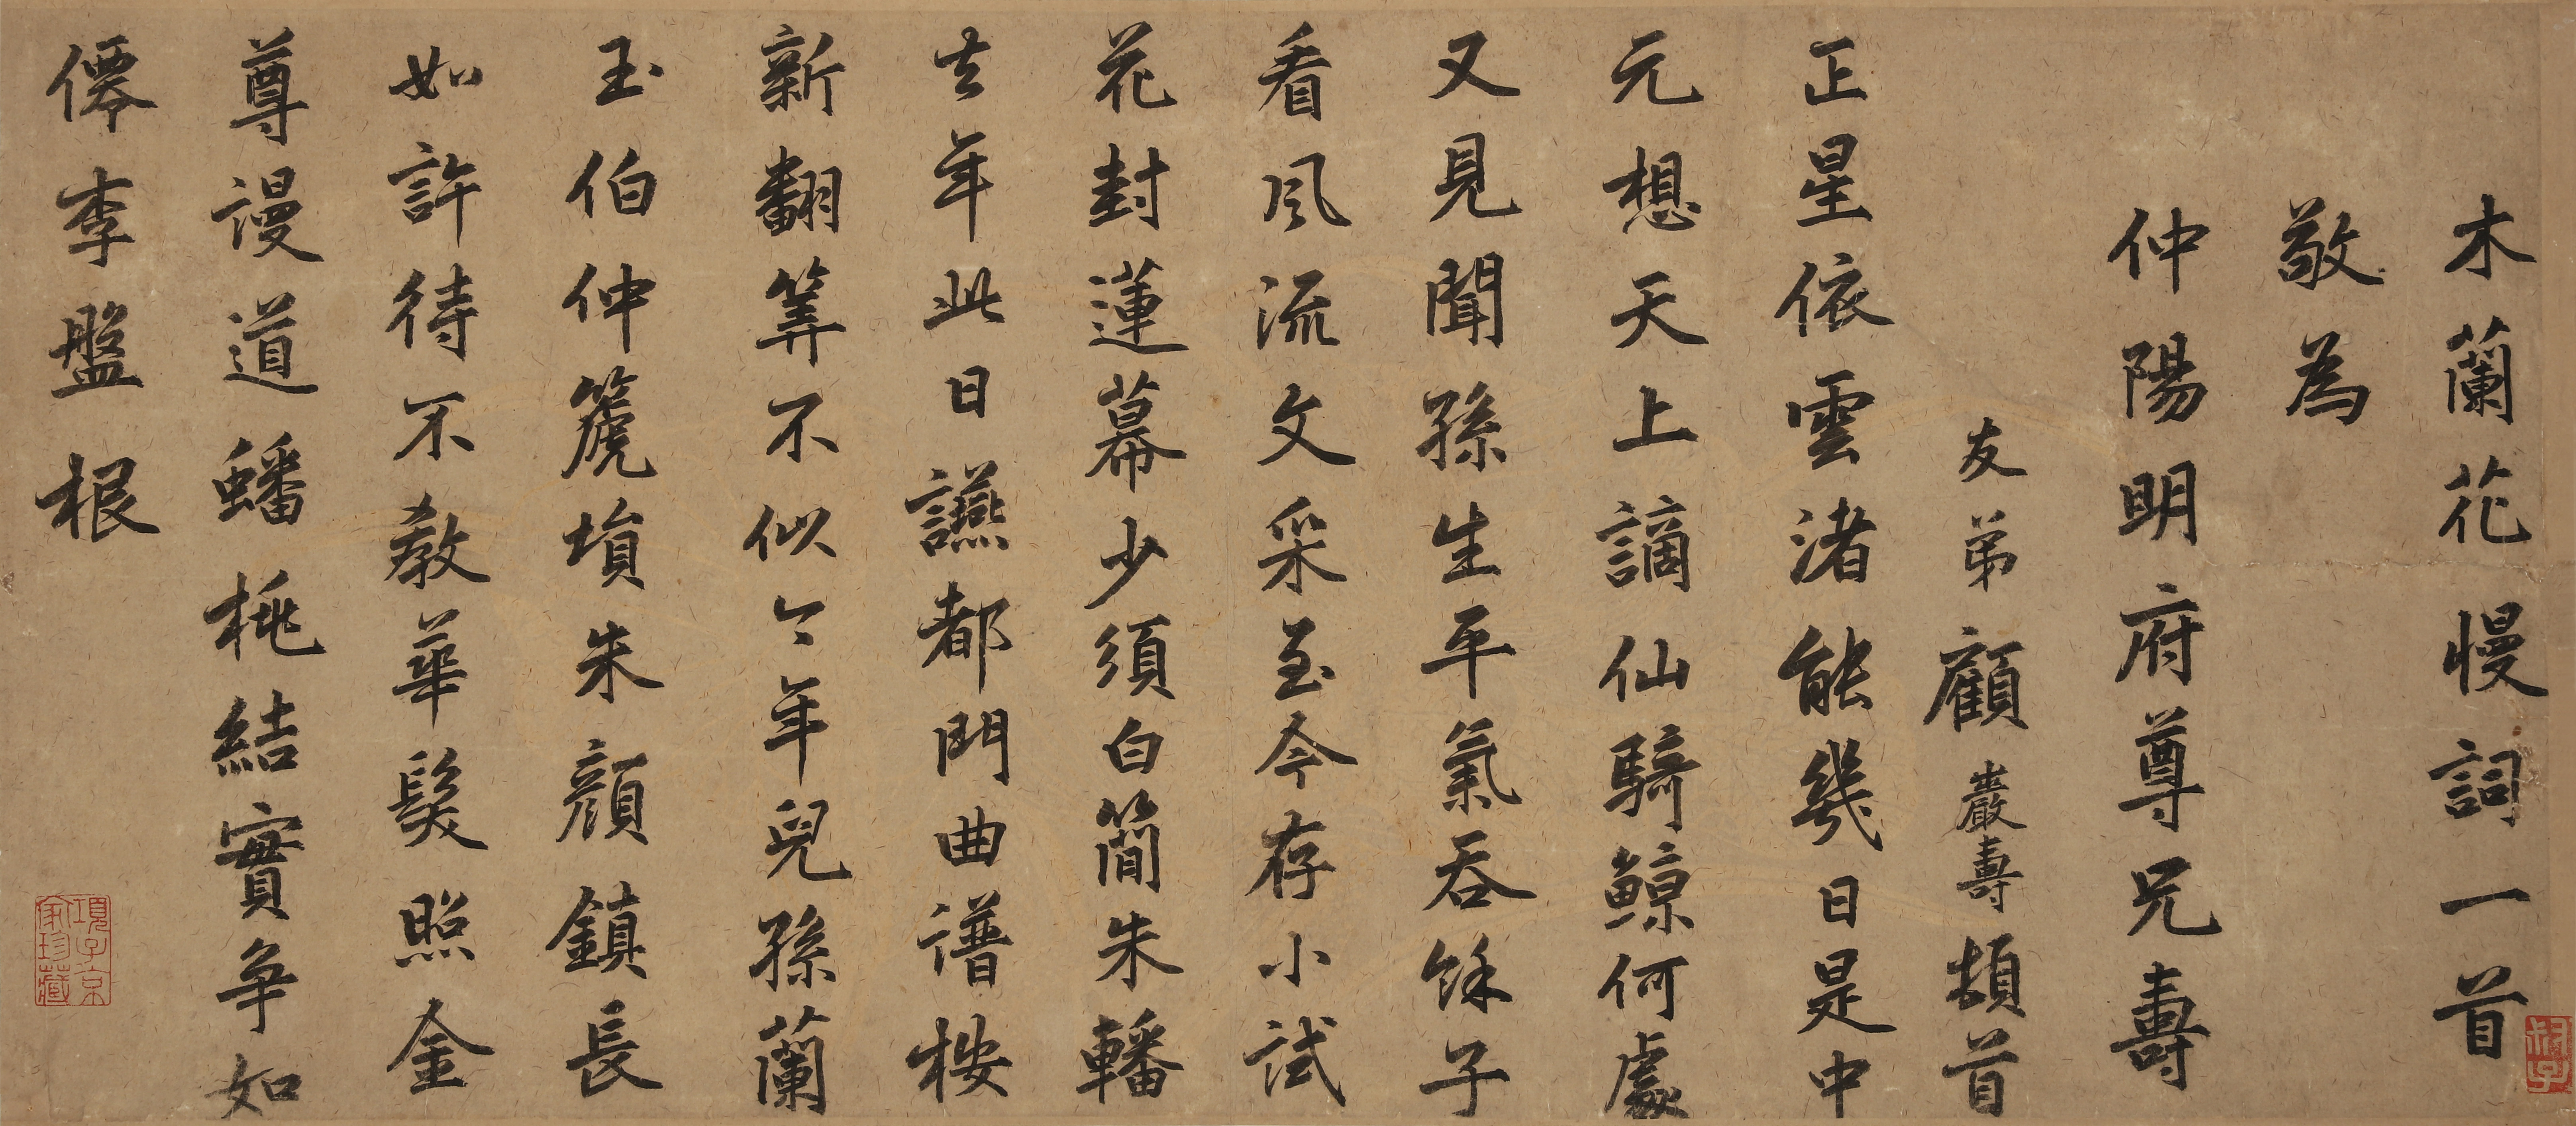 木蘭花慢詞一首
敬為
仲陽明府尊兄壽
友弟顧巖壽頓首
正星依雲渚能幾日是中
元想天上謫仙騎鯨何處
又見聞孫生平氣吞餘子
看風流文采至今存小試
花封蓮幕少須白簡朱轓
去年此日讌都門曲譜按
新翻筭不似今年兒孫蘭
玉伯仲篪塤朱顏鎮長
如許待不教華髮照金
尊謾道蟠桃結實爭如
僊李盤根
項子京
家珍藏